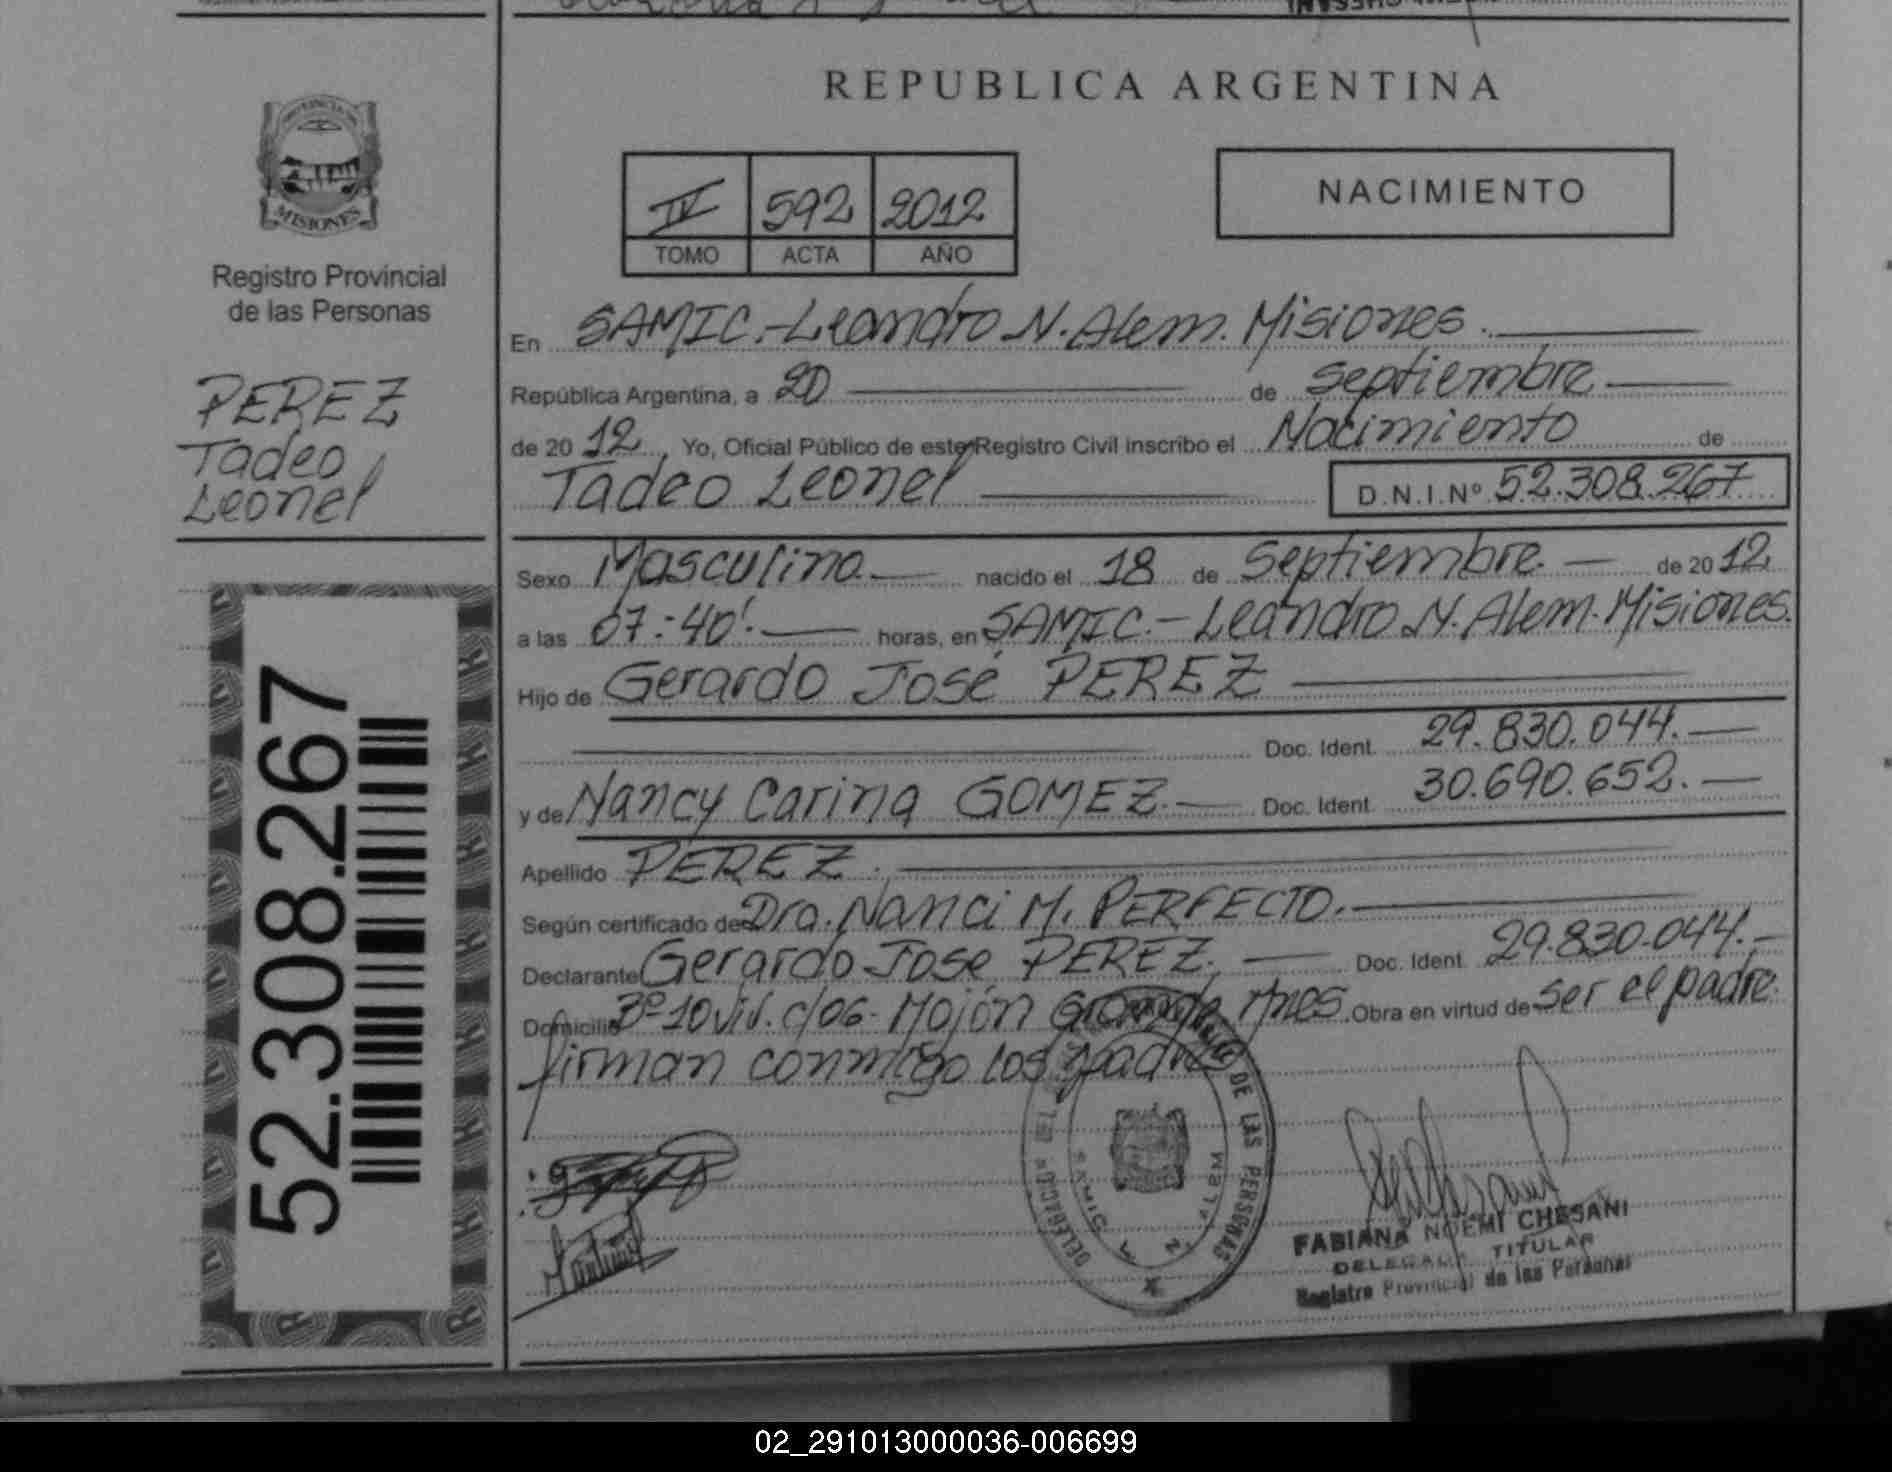 REPUBLICA ARGENTINA
PROVINCIA DE
MISIONES
Registro Provincial
de las Personas
IV 592 2012
TOMO ACTA AÑO
NACIMIENTO
PEREZ
Tadeo
Leonel
En SAMIC.-Leandro N. Alem. Misiones.
República Argentina, a 20 de septiembre
de 2012, Yo, Oficial Público de este Registro Civil inscribo el Nacimiento de
Tadeo Leonel D.N.I.Nº 52.308.267
Sexo Masculino. nacido el 18 de Septiembre. de 2012
a las 07:40'. horas, en SAMIC.- Leandro N. Alem. Misiones.
Hijo de Gerardo José PEREZ
Doc. Ident. 29.830.044.
y de Nancy Carina GOMEZ. Doc. Ident. 30.690.652.
Apellido PEREZ.
Según certificado de Dra. Nanci M. PERFECTO.
Declarante Gerardo Jose PEREZ. Doc. Ident. 29.830.044.-
Domicilio 3º 10 viv. c/06- Mojón Grande Mnes. Obra en virtud de ser el padre.
firman conmigo los padres
52.308.267
DE LAS PERSONAS
DELEGACION
SAMIC
FABIANA NOEMI CHESANI
DELEGADA TITULAR
Registro Provincial de las Personas
02_291013000036-006699